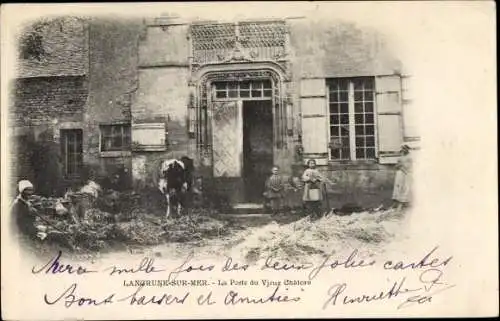 LANGRUNE-SUR-MER. - La Porte du Vieux Château
Merci mille fois des deux jolies cartes
Bons baisers et Amitiés Henriette